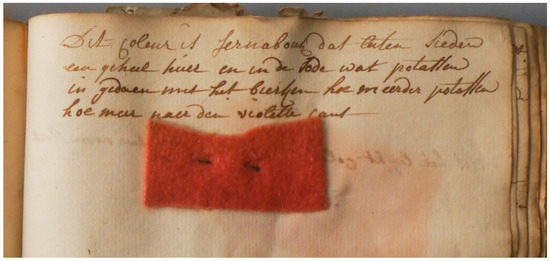 Dit Coleur is fernabouq dat laten sieden
een geheel huer en in de Tode wat potassen
in gedaen met het biertjen hoe meerder potassen
hoe meer naer den violette cant